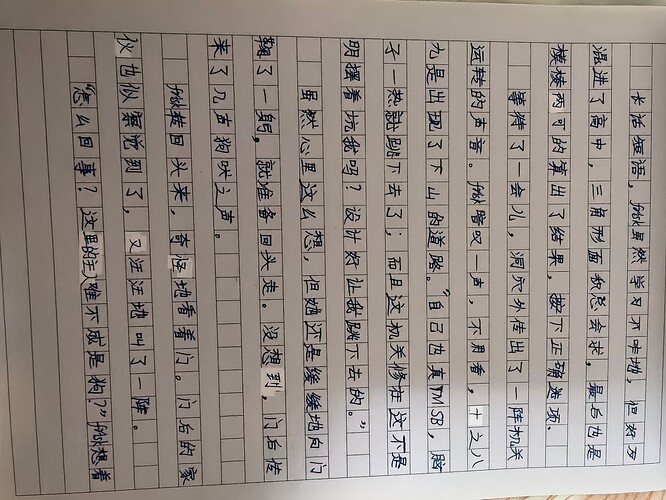 长话短语，fhk虽然学习不咋地，但好歹
混进了高中，三角形面积总会求，最后也是
模棱两可的算出了结果，按下正确选项。
等待了一会儿，洞穴外传出了一阵机关
运转的声音。fhk暗叹一声，不用看，十之八
九是出现了下山的道路。“自己也真TMSB，脑
子一热就跳下去了；而且这机关修在这不是
明摆着坑我吗？设计好让我跳下去的。”
虽然心里这么想，但她还是缓缓地向门
鞠了一躬，就准备回头走。没想到，门后传
来了几声狗吠之声。
fhk转回头来，奇怪地看着门。门后的家
伙也似察觉到了，又汪汪地叫了一阵。
“怎么回事？这里的主人难不成是狗？”fhk想着